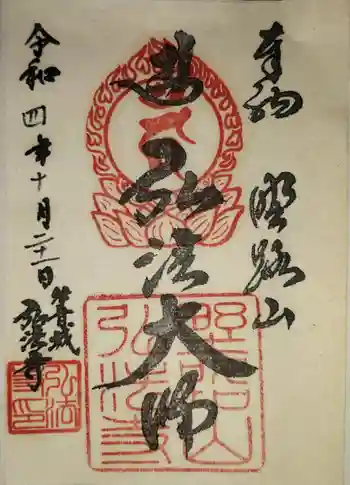 奉拝
照路山
弘法大師
令和四年十月二十一日
弘法寺
照路山
弘法寺
弘法
寺印